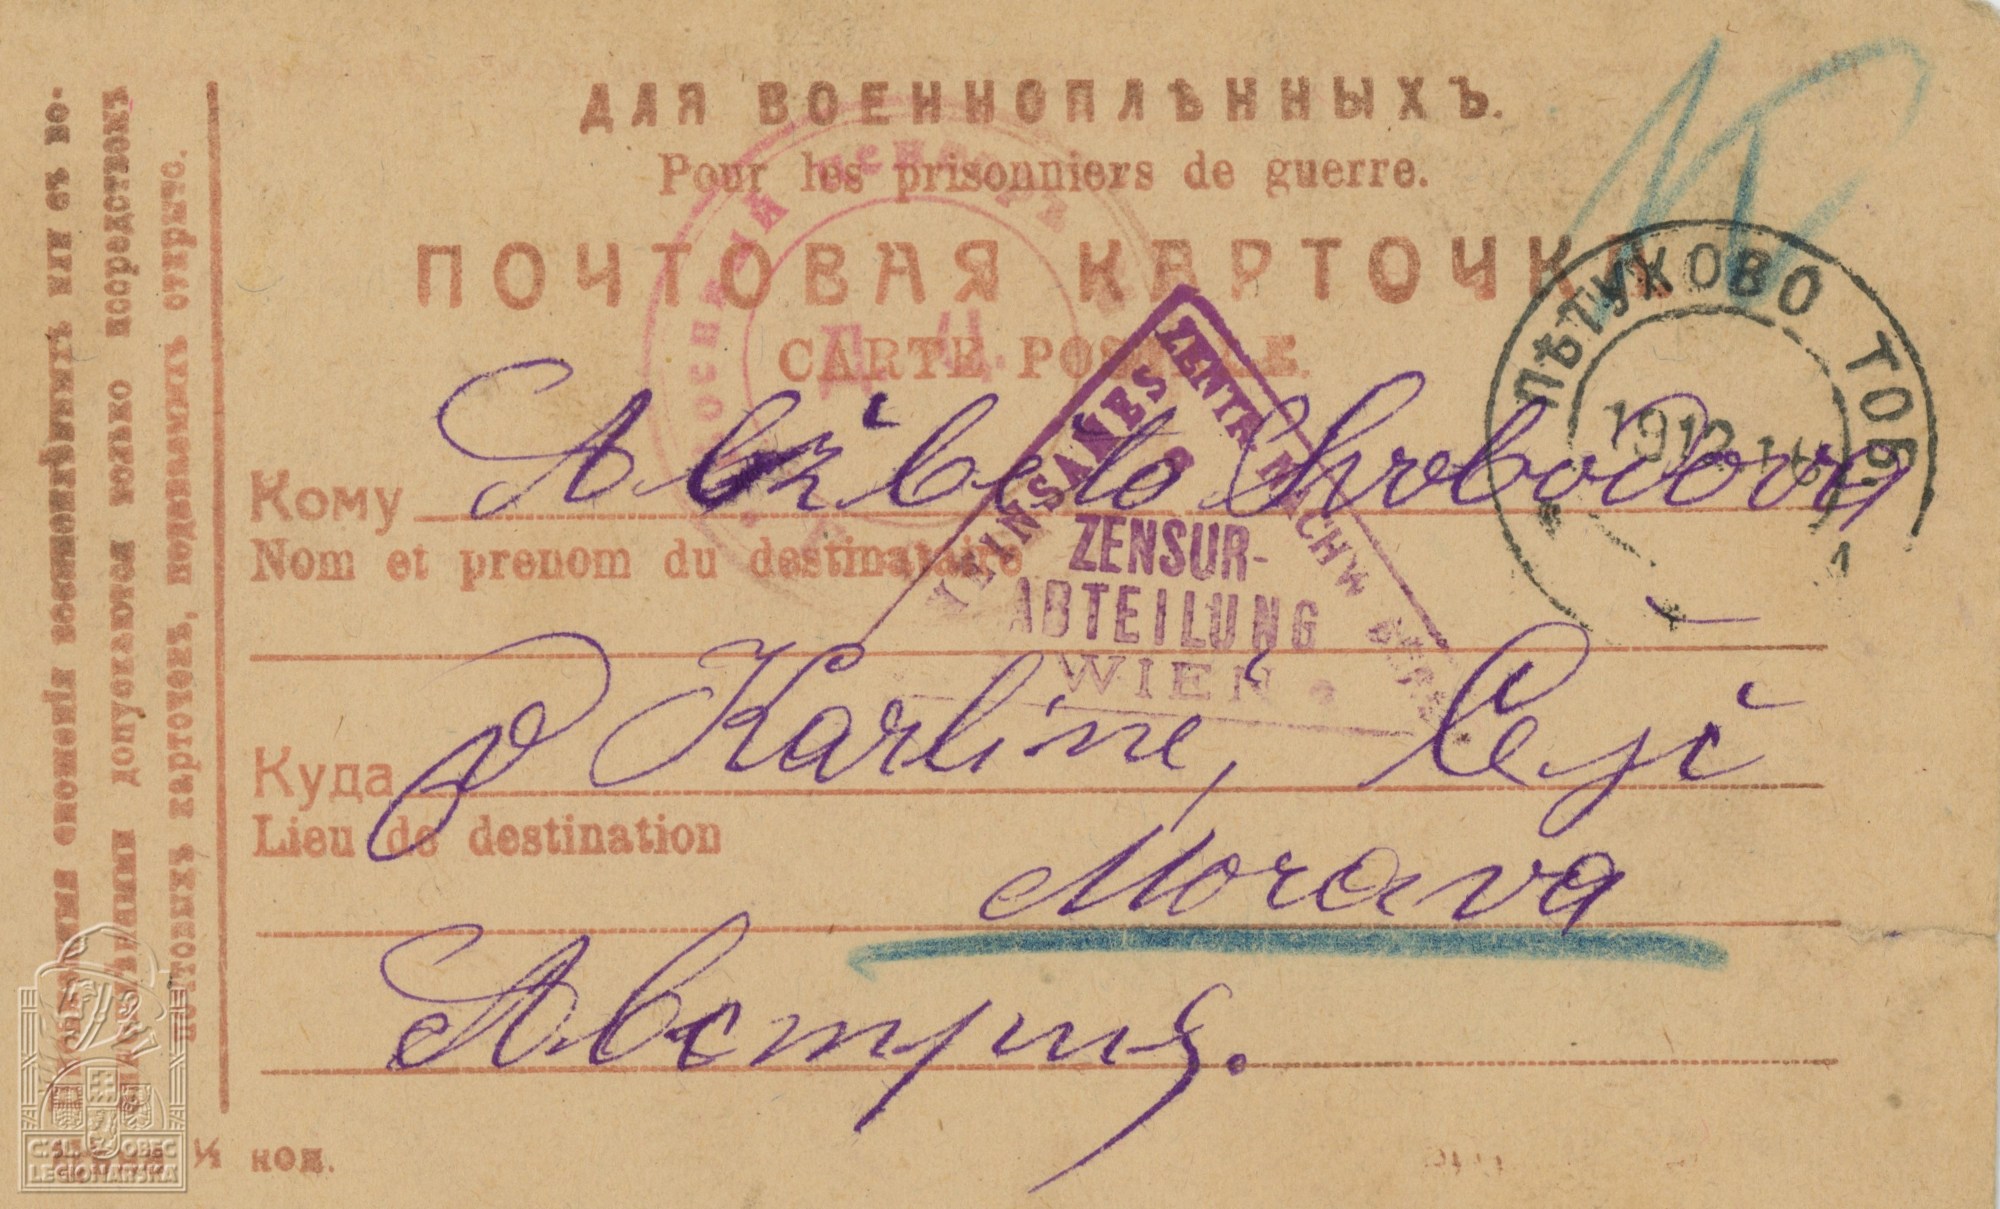 ДЛЯ ВОЕННОПЛѢННЫХЪ.
Pour les prisonniers de guerre.
ПОЧТОВАЯ КАРТОЧКА
CARTE POSTALE.
ПѢТУХОВО ТОБ.
ZENSUR-
ABTEILUNG
WIEN
Кому Alžbeto Svobodova
Nom et prenom du destinataire
Куда v Karlíně, Čejč
Lieu de destination
Morava
Австрия.
сношенія военноплѣнныхъ или съ во-
допускаются только посредствомъ
почтовыхъ карточекъ, подаваемыхъ открыто.
½ коп.
ČSL. OBEC
LEGIONÁŘSKÁ